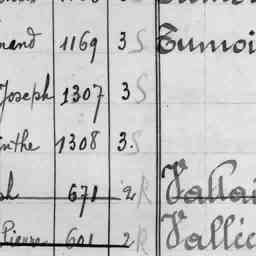 1169 3 S Tumoi
Joseph 1307 3 S
1308 3. S
671 2 R Vallai
Pierre 601 2 R Vallic